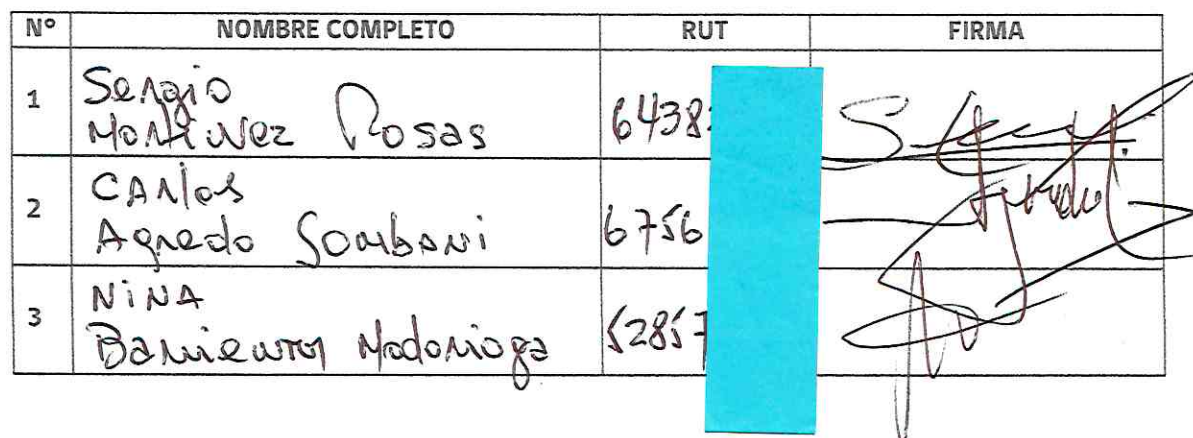 Nº NOMBRE COMPLETO RUT FIRMA
1 Sergio
Martinez Rosas 6438
2 CARlos
Agredo Sombani 6756
3 NiNA
Barrientos Madariaga 52857